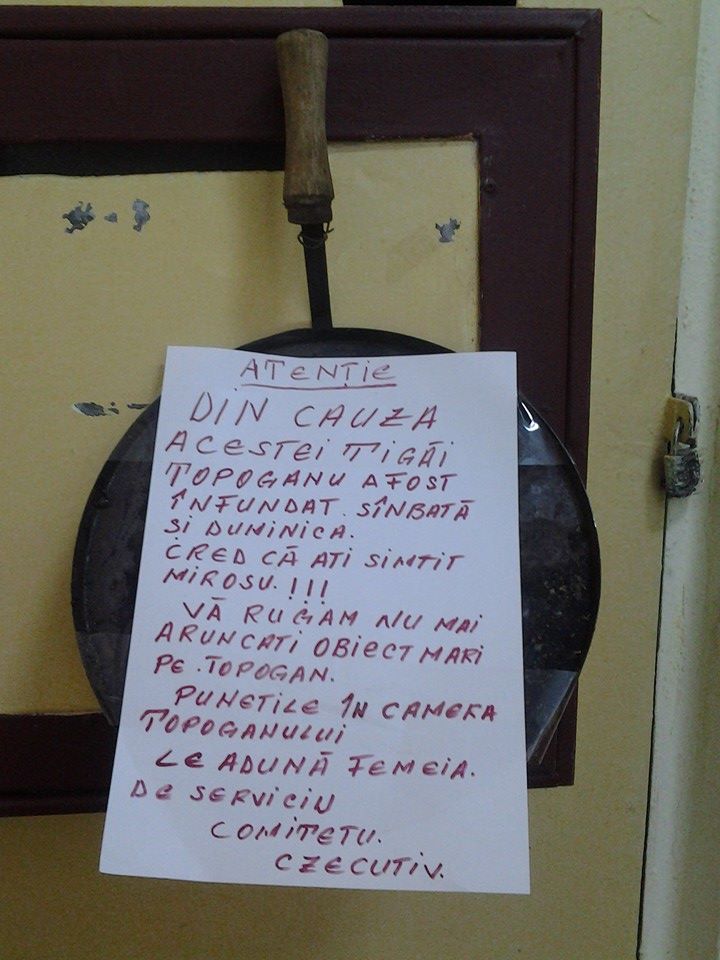 ATENȚIE
DIN CAUZA
ACESTEI TIGĂI
TOPOGANU A FOST
ÎNFUNDAT. SÎNBATĂ
ȘI DUMINICA.
CRED CĂ ATI SIMTIT
MIROSU.!!!
VĂ RUGAM NU MAI
ARUNCATI OBIECT MARI
PE .TOPOGAN.
PUNETILE ÎN CAMERA
TOPOGANULUI
LE ADUNĂ FEMEIA.
DE SERVICIU
COMITETU.
CZECUTIV.